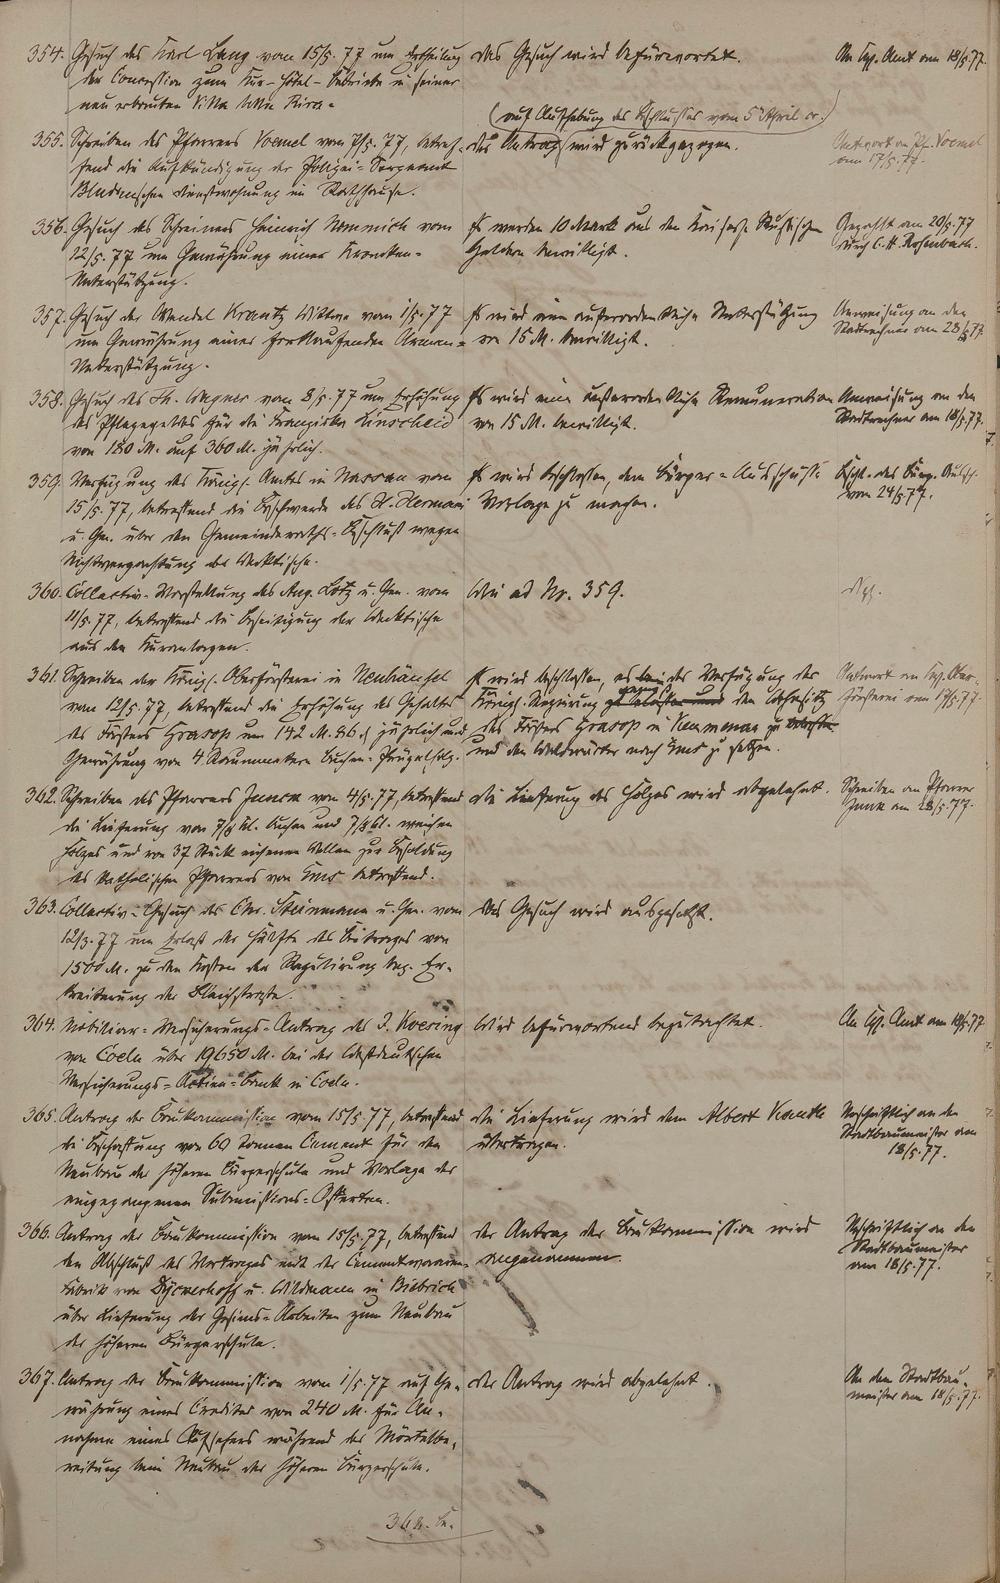 354. Gesuch des Karl Lang vom 15/5. 77 um Ertheilung
der Concession zum Kur-Hôtel-Betriebe in seiner
neu erbauten Villa
das Gesuch wird befürwortet.
An Kgl. Amt am 18/5. 77.
355. Schreiben des Pfarrers Voemel vom 7/5. 77, betref-
fend die Aufkündigung der Polizei-Sergeant
Dienstwohnung im Rathhause.
(auf Aufhebung des Beschlusses vom 5 April cr.)
der Antrag wird zurückgezogen.
Antwort an Pf. Voemel
am 17/5. 77.
356. Gesuch des Schreiners Heinrich Nommich vom
12/5. 77 um Gewährung einer Kranken-
Unterstützung.
Es werden 10 Mark aus den
Geldern bewilligt.
Gezahlt am 20/5. 77
durch C. H. Rosenbach.
357. Gesuch der Wendel Krantz Wittwe vom 1/5. 77
um Gewährung einer fortlaufenden Armen-
Unterstützung.
Es wird eine außerordentliche Unterstützung
von 15 M. bewilligt.
Anweisung an den
Stadtrechner am 28/5. 77.
358. Gesuch des Th. Wagner vom 8/5. 77 um Erhöhung
des Pflegegeldes für die Franziska Linscheid
von 180 M. auf 360 M. jährlich.
Es wird eine außerordentliche Remuneration
von 15 M. bewilligt.
Anweisung an den
Stadtrechner am 18/5. 77.
359. Verfügung des Königl. Amtes in Nassau vom
15/5. 77, betreffend die Beschwerde des H. Hermani
u. Gen. über den Gemeinderaths-Beschluß wegen
Nichtverpachtung der Werktische.
Es wird beschlossen, dem Bürger-Ausschusse
Vorlage zu machen.
Beschl. des Bürg. Aussch.
vom 24/5. 77.
360. Collectiv-Vorstellung des Aug. Lotz u. Gen. vom
11/5. 77, betreffend die Beseitigung der Werktische
aus den Kuranlagen.
Wie ad No. 359.
dgl.
361. Schreiben der Königl. Oberförsterei in Neuhäusel
vom 12/5. 77, betreffend die Erhöhung des Gehaltes
des Försters Grasop um 142 M. 86 d jährlich und
Gewährung von 4 Raummetern Buchen-Prügelholz.
Es wird beschlossen, es bei der Verfügung der
Königl. Regierung zu belassen und den Wohnsitz
des Försters Grasop in Kemmenau zu belassen
und den Waldwärter nach Ems zu setzen.
Antwort an Kgl. Ober-
försterei am 17/5. 77.
362. Schreiben des Pfarrers Junck vom 4/5. 77, betreffend
die Lieferung von 7/8 Kl. Buchen und 7/8 Kl. weichen
Holzes und von 37 Stück eichenen Wellen zur Besoldung
des katholischen Pfarrers von Ems betreffend.
die Lieferung des Holzes wird abgelehnt.
Schreiben an Pfarrer
Junk am 28/5. 77.
363. Collectiv-Gesuch des Chr. Steinmann u. Gen. vom
12/3. 77 um Erlaß der Hälfte des Beitrages von
1500 M. zu den Kosten der Regulirung bez. Er-
breiterung der Bleichstraße.
Das Gesuch wird ausgesetzt.
364. Mobiliar-Versicherungs-Antrag des J. Koering
von Coeln über 19650 M. bei der Westdeutschen
Versicherungs-Actien-Bank in Coeln.
Wird befürwortend begutachtet.
An Kgl. Amt am 18/5. 77
365. Antrag der Baukommission vom 15/5. 77, betreffend
die Beschaffung von 60 Tonnen Cement für den
Neubau der höheren Bürgerschule und Vorlage der
eingegangenen Submissions-Offerten.
die Lieferung wird dem Albert Kauth
übertragen.
Urschriftlich an den
Stadtbaumeister am
18/5. 77.
366. Antrag der Baukommission vom 15/5. 77, betreffend
den Abschluß des Vertrages mit der Cementwaaren-
Fabrik von Dyckerhoff u. Widmann in Biebrich
über Lieferung der Gesims-Arbeiten zum Neubau
der höheren Bürgerschule.
der Antrag der Baukommission wird
angenommen.
Urschriftlich an den
Stadtbaumeister
am 18/5. 77.
367. Antrag der Baukommission vom 1/5. 77 auf Ge-
währung eines Credites von 240 M. für An-
nahme eines Aufsehers während der Mörtelbe-
reitung beim Neubau der höheren Bürgerschule.
der Antrag wird abgelehnt.
An den Stadtbau-
meister am 18/5. 77.